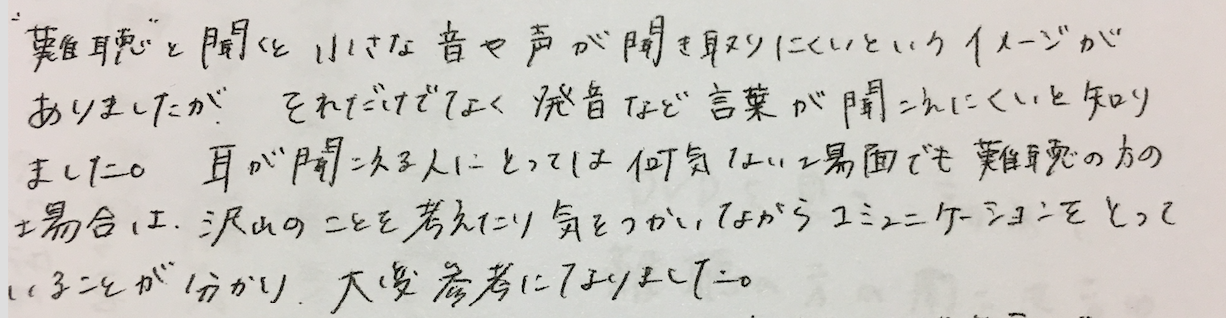 "難聴"と聞くと 小さな音や声が聞き取りにくいというイメージが
ありましたが、それだけでなく発音など言葉が聞こえにくいと知り
ました。耳が聞こえる人にとっては何気ない場面でも難聴の方の
場合は、沢山のことを考えたり気をつかいながらコミュニケーションをとって
いることが分かり、大変参考になりました。